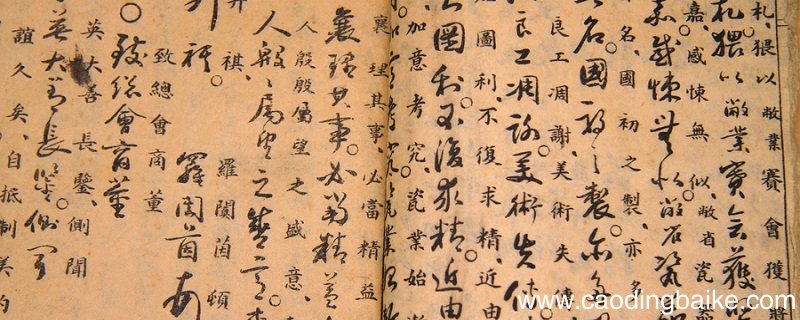 札猥以敝業賽會獲獎
札猥以敝業賽會獲
嘉、感悚無似、敝省瓷
嘉感悚無似敝省瓷
名、國初之製、亦名
名國初之製亦名
良工凋謝、美術失傳
良工凋謝美術失傳
圖利、不復求精、近由
圖利不復求精近由
加意考究、瓷業始
襄理其事、必當精益
襄理其事必當精益
人殷殷屬望之盛意、
人殷殷屬望之盛意
祺、
羅閬茵頓
祺
羅閬茵頓
致總會商董
致總會商董
英大善長鑒、側聞
英大善長鑒側聞
誼久矣、自抵制美約
www.caodingbaike.com